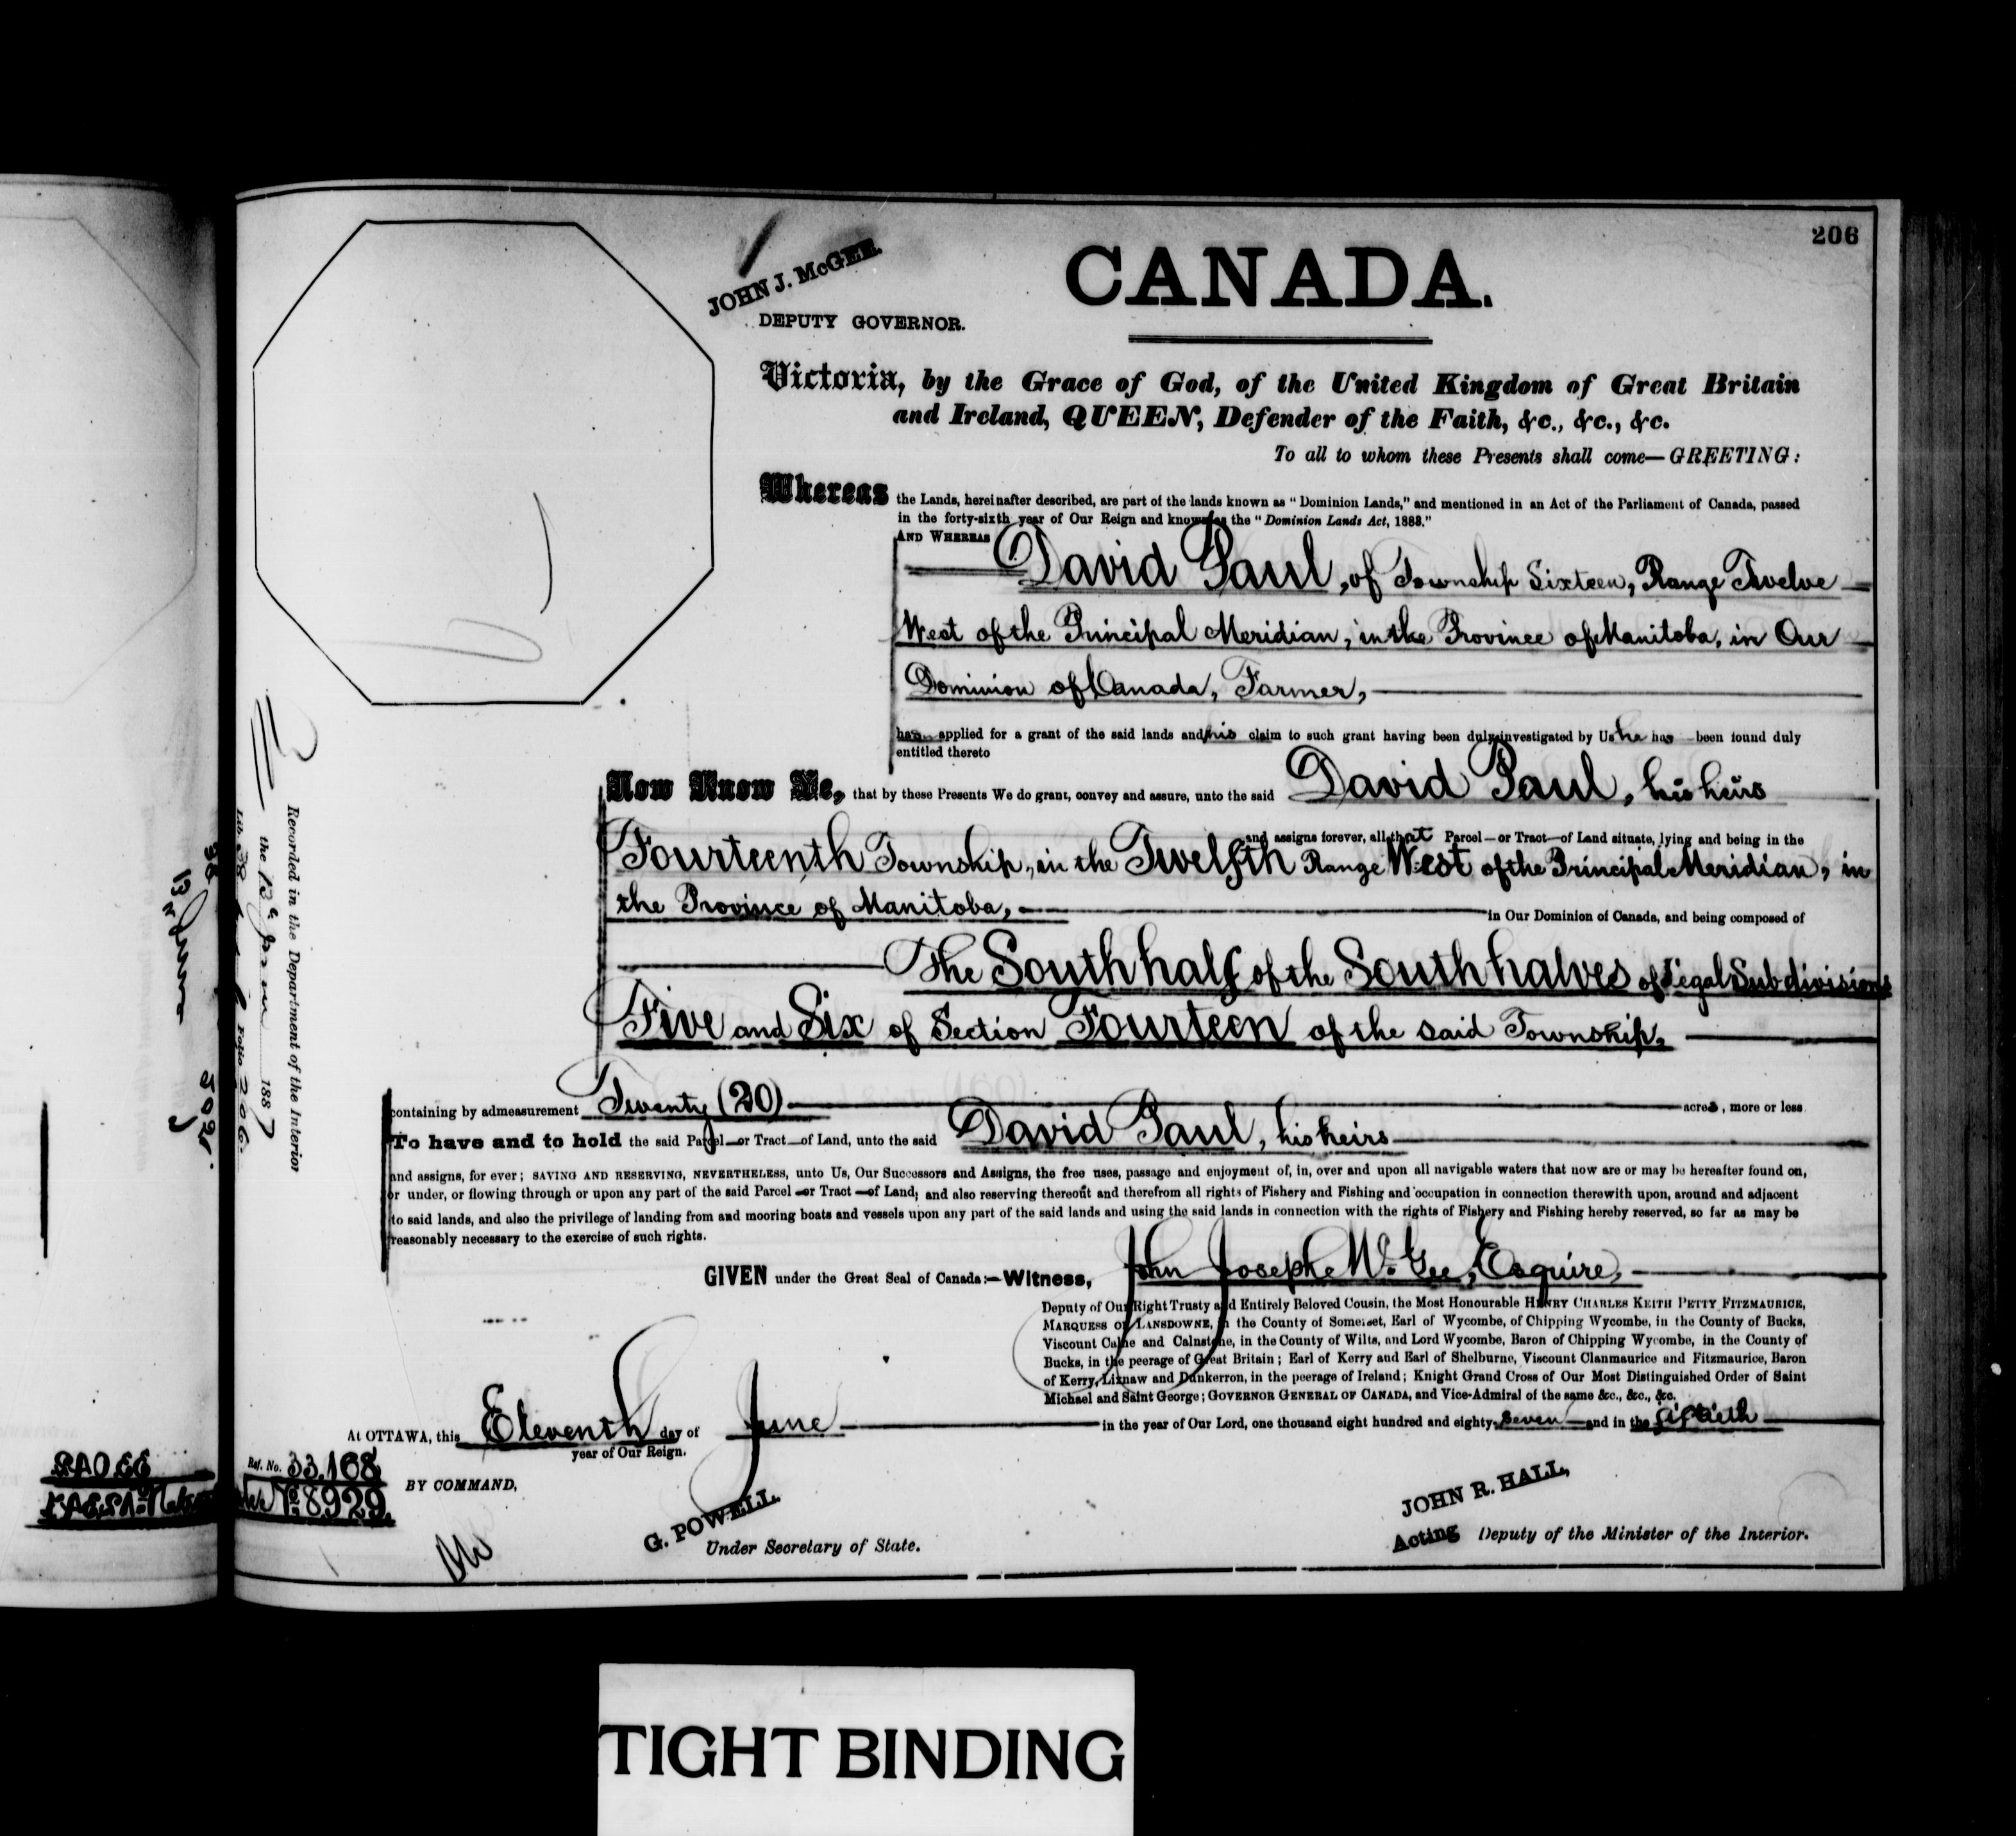 206
JOHN J. McGEE.
DEPUTY GOVERNOR.
CANADA.
Victoria, by the Grace of God, of the United Kingdom of Great Britain
and Ireland, QUEEN, Defender of the Faith, &c., &c., &c.
To all to whom these Presents shall come—GREETING:
Whereas the Lands, hereinafter described, are part of the lands known as "Dominion Lands," and mentioned in an Act of the Parliament of Canada, passed
in the forty-sixth year of Our Reign and known as the "Dominion Lands Act, 1883."
AND WHEREAS
David Paul, of Township Sixteen, Range Twelve
West of the Principal Meridian, in the Province of Manitoba, in Our
Dominion of Canada, Farmer,
has applied for a grant of the said lands and his claim to such grant having been duly investigated by Us he has been found duly
entitled thereto
Now Know Ye, that by these Presents We do grant, convey and assure, unto the said David Paul, his heirs
and assigns forever, all that Parcel—or Tract—of Land situate, lying and being in the
Fourteenth Township, in the Twelfth Range West of the Principal Meridian, in
the Province of Manitoba, in Our Dominion of Canada, and being composed of
The South half of the South halves of Legal Subdivisions
Five and Six of Section Fourteen of the said Township,
containing by admeasurement Twenty (20) acres, more or less
To have and to hold the said Parcel—or Tract—of Land, unto the said David Paul, his heirs
and assigns, for ever; SAVING AND RESERVING, NEVERTHELESS, unto Us, Our Successors and Assigns, the free uses, passage and enjoyment of, in, over and upon all navigable waters that now are or may be hereafter found on,
or under, or flowing through or upon any part of the said Parcel—or Tract—of Land; and also reserving thereout and therefrom all rights of Fishery and Fishing and occupation in connection therewith upon, around and adjacent
to said lands, and also the privilege of landing from and mooring boats and vessels upon any part of the said lands and using the said lands in connection with the rights of Fishery and Fishing hereby reserved, so far as may be
reasonably necessary to the exercise of such rights.
GIVEN under the Great Seal of Canada:—Witness, John Joseph McGee, Esquire,
Deputy of Our Right Trusty and Entirely Beloved Cousin, the Most Honourable HENRY CHARLES KEITH PETTY FITZMAURICE,
MARQUESS OF LANSDOWNE, in the County of Somerset, Earl of Wycombe, of Chipping Wycombe, in the County of Bucks,
Viscount Calne and Calnstone, in the County of Wilts, and Lord Wycombe, Baron of Chipping Wycombe, in the County of
Bucks, in the peerage of Great Britain; Earl of Kerry and Earl of Shelburne, Viscount Clanmaurice and Fitzmaurice, Baron
of Kerry, Lixnaw and Dunkerron, in the peerage of Ireland; Knight Grand Cross of Our Most Distinguished Order of Saint
Michael and Saint George; GOVERNOR GENERAL OF CANADA, and Vice-Admiral of the same &c., &c., &c.
At OTTAWA, this Eleventh day of June in the year of Our Lord, one thousand eight hundred and eighty-seven and in the fiftieth
year of Our Reign.
Ref. No. 33.168
No 8929.
BY COMMAND,
G. POWELL.
Under Secretary of State.
JOHN R. HALL,
Acting Deputy of the Minister of the Interior.
Recorded in the Department of the Interior
the 13th June 1887
Lib. 38 Folio 206
TIGHT BINDING